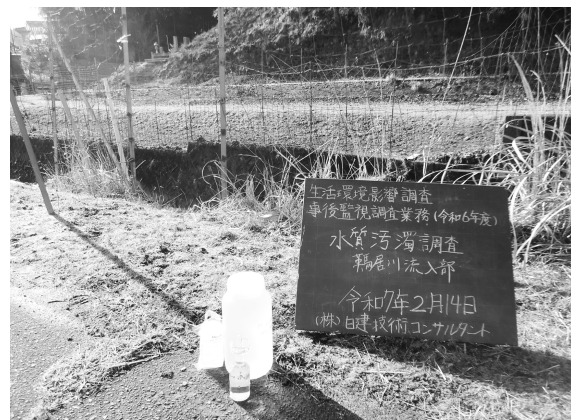 生活環境影響調査
事後監視調査業務(令和6年度)
水質汚濁調査
鶉居川流入部
令和7年2月14日
(株)日建技術コンサルタント